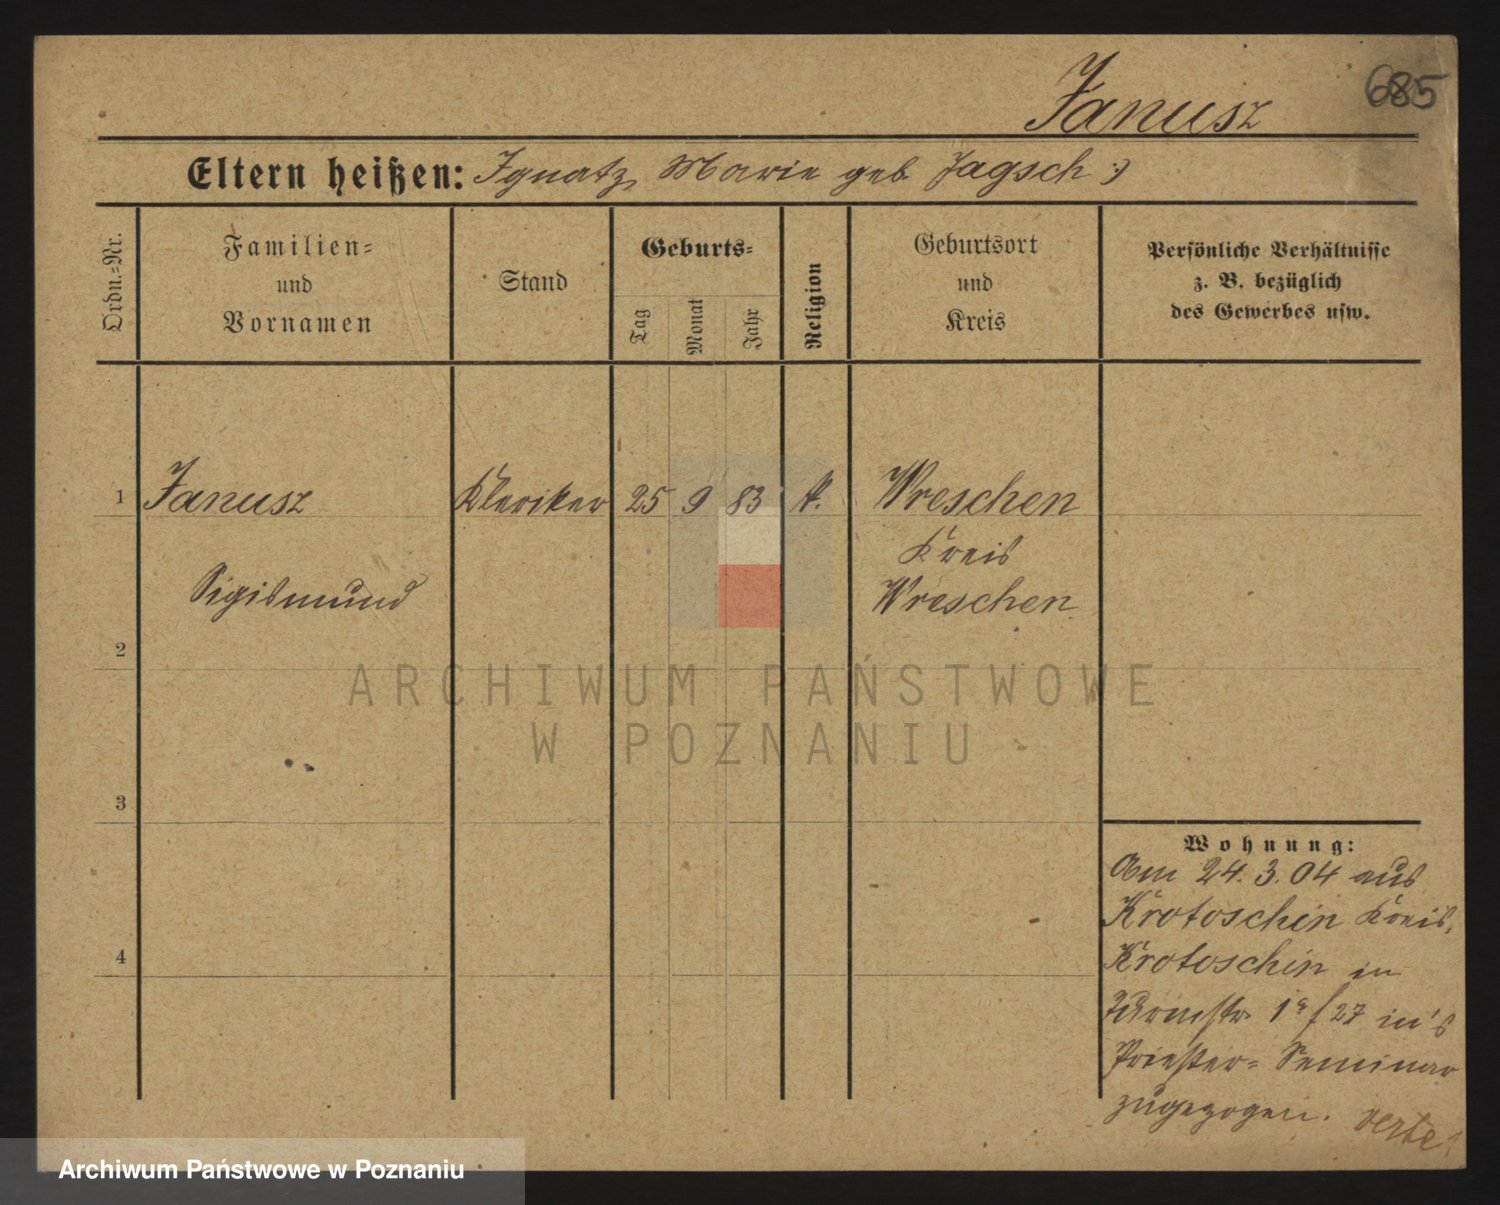 Janusz
685
Eltern heißen: Ignatz, Marie geb Jagsch :)
Ordn.=Nr.
Familien=
und
Vornamen
Stand
Geburts=
Tag
Monat
Jahr
Religion
Geburtsort
und
Kreis
Persönliche Verhältnisse
z. B. bezüglich
des Gewerbes usw.
1 Janusz Kleriker 25 9 83 k. Wreschen
Kreis
Sigismund Wreschen
2
ARCHIWUM PAŃSTWOWE
W POZNANIU
3
Wohnung:
Am 24. 3. 04 aus
Krotoschin Kreis,
4
Krotoschin in
1ª/27 in's
Priester= Seminar
zugezogen. verte!
Archiwum Państwowe w Poznaniu